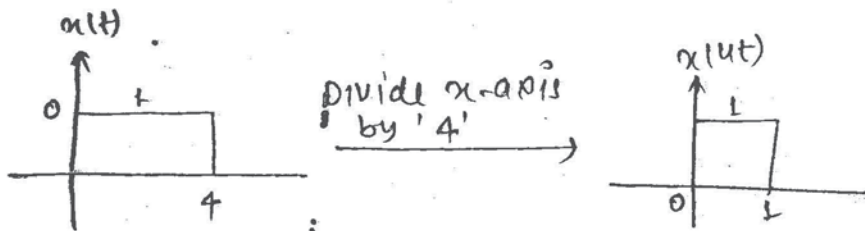 x(t)
0 1
4
Divide x-axis
by '4'
x(4t)
1
0 1